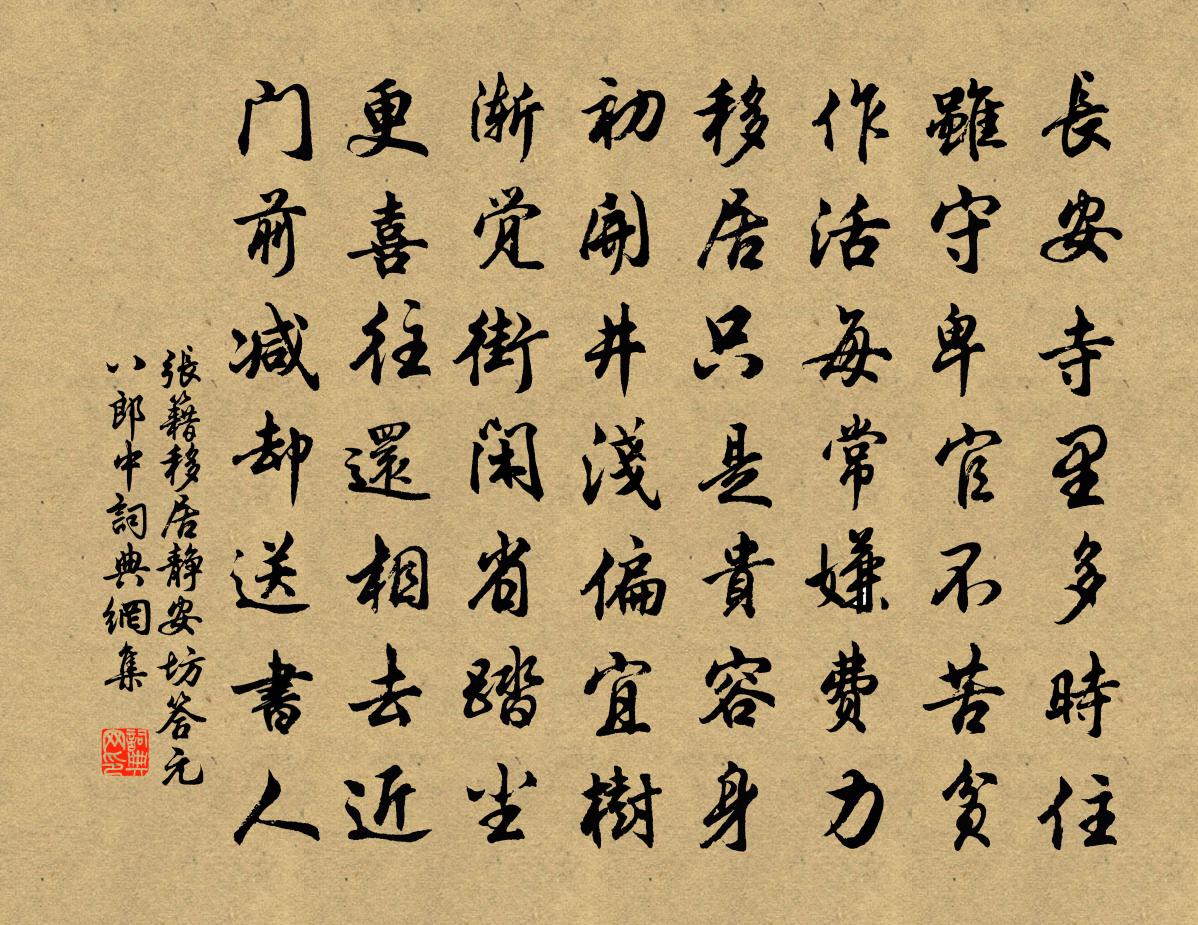 長安寺里多時住
雖守卑官不苦貧
作活每常嫌費力
移居只是貴容身
初開井淺偏宜樹
漸觉街闲省踏尘
更喜往還相去近
门前减却送書人
張籍移居静安坊答元
八郎中詞典網集
詞典网印